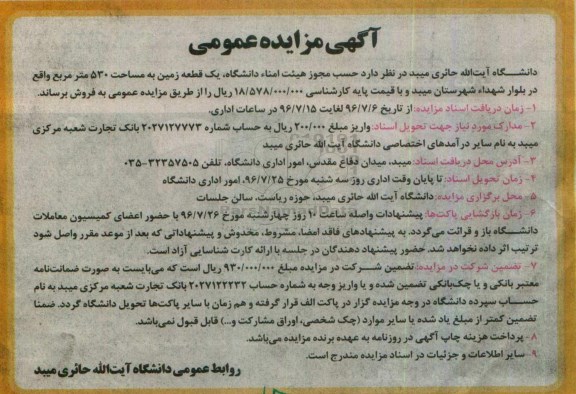 آگهی مزایده عمومی
دانشگاه آیت‌الله حائری میبد در نظر دارد حسب مجوز هیئت امناء دانشگاه، یک قطعه زمین به مساحت ۵۳۰ متر مربع واقع
در بلوار شهداء شهرستان میبد و با قیمت پایه کارشناسی ۱۸/۵۷۸/۰۰۰/۰۰۰ ریال را از طریق مزایده عمومی به فروش برساند.
۱- زمان دریافت اسناد مزایده: از تاریخ ۹۶/۷/۶ لغایت ۹۶/۷/۱۵ در ساعات اداری.
۲- مدارک مورد نیاز جهت تحویل اسناد: واریز مبلغ ۲۰۰/۰۰۰ ریال به حساب شماره ۲۰۲۷۱۲۷۷۷۳ بانک تجارت شعبه مرکزی
میبد به نام سایر درآمدهای اختصاصی دانشگاه آیت الله حائری میبد
۳- آدرس محل دریافت اسناد: میبد، میدان دفاع مقدس، امور اداری دانشگاه، تلفن ۳۲۳۵۷۵۰۵-۰۳۵
۴- زمان تحویل اسناد: تا پایان وقت اداری روز سه شنبه مورخ ۹۶/۷/۲۵، امور اداری دانشگاه
۵- محل برگزاری مزایده: دانشگاه آیت الله حائری میبد، حوزه ریاست، سالن جلسات
۶- زمان بازگشایی پاکت‌ها: پیشنهادات واصله ساعت ۱۰ روز چهارشنبه مورخ ۹۶/۷/۲۶ با حضور اعضای کمیسیون معاملات
دانشگاه باز و قرائت می‌گردد. به پیشنهادهای فاقد امضا، مشروط، مخدوش و پیشنهاداتی که بعد از موعد مقرر واصل شود
ترتیب اثر داده نخواهد شد. حضور پیشنهاد دهندگان در جلسه با ارائه کارت شناسایی آزاد است.
۷- تضمین شرکت در مزایده: تضمین شرکت در مزایده مبلغ ۹۳۰/۰۰۰/۰۰۰ ریال است که می‌بایست به صورت ضمانت‌نامه
معتبر بانکی و یا چک‌بانکی تضمین شده و یا واریز وجه به شماره حساب ۲۰۲۷۱۲۲۲۳۲ بانک تجارت شعبه مرکزی میبد به نام
حساب سپرده دانشگاه در وجه مزایده گزار در پاکت الف قرار گرفته و هم زمان با سایر پاکت‌ها تحویل دانشگاه گردد. ضمنا
تضمین کمتر از مبلغ یاد شده یا سایر موارد (چک شخصی، اوراق مشارکت و...) قابل قبول نمی‌باشد.
۸- پرداخت هزینه چاپ آگهی در روزنامه به عهده برنده مزایده می‌باشد.
۹- سایر اطلاعات و جزئیات در اسناد مزایده مندرج است.
روابط عمومی دانشگاه آیت‌الله حائری میبد